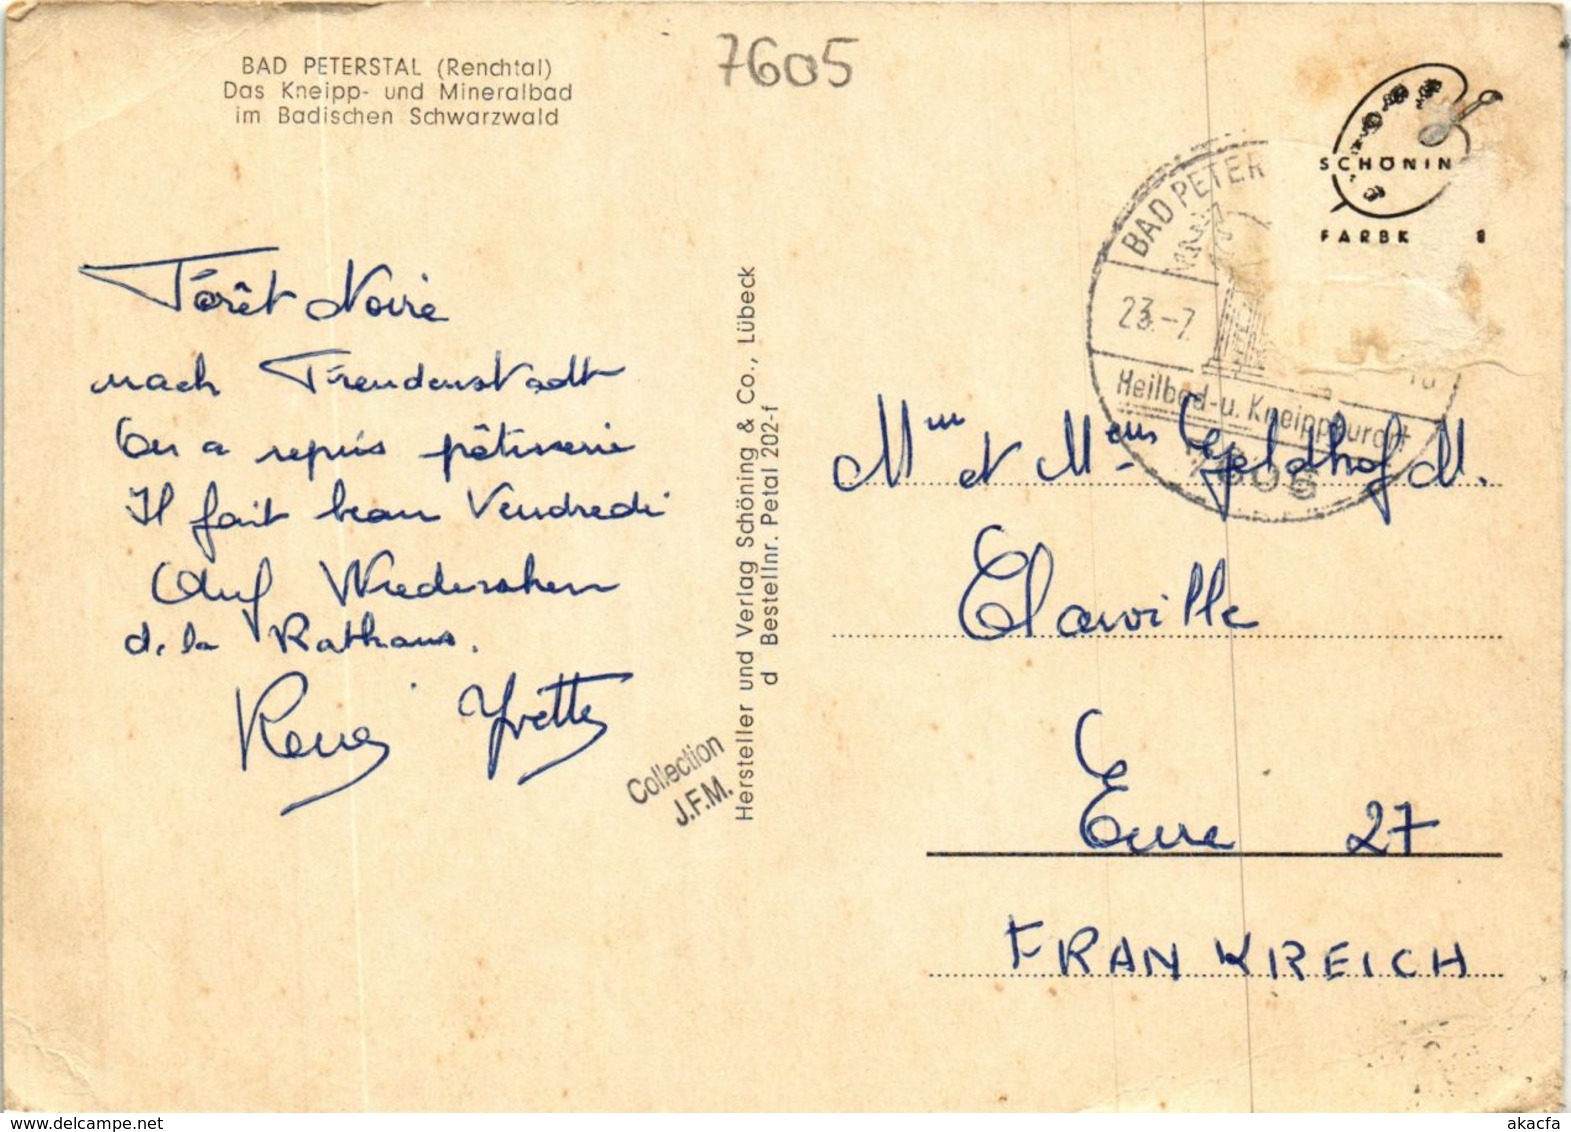 BAD PETERSTAL (Renchtal)
Das Kneipp- und Mineralbad
im Badischen Schwarzwald
7605
SCHÖNIN
FARBK
BAD PETER
23.-7.
Heilbad-u. Kneippkurort
7605
Forêt Noire
nach Freudenstadt
On a repris pâtisserie
Il fait beau Vendredi
Auf Wiedersehen
de la Rathaus.
René Yvette
Collection
J.F.M.
Hersteller und Verlag Schöning & Co., Lübeck
d Bestellnr. Petal 202-f
Mm et Mem Geldhof M.
Claville
Eure 27
FRANKREICH
akacfa
www.delcampe.net